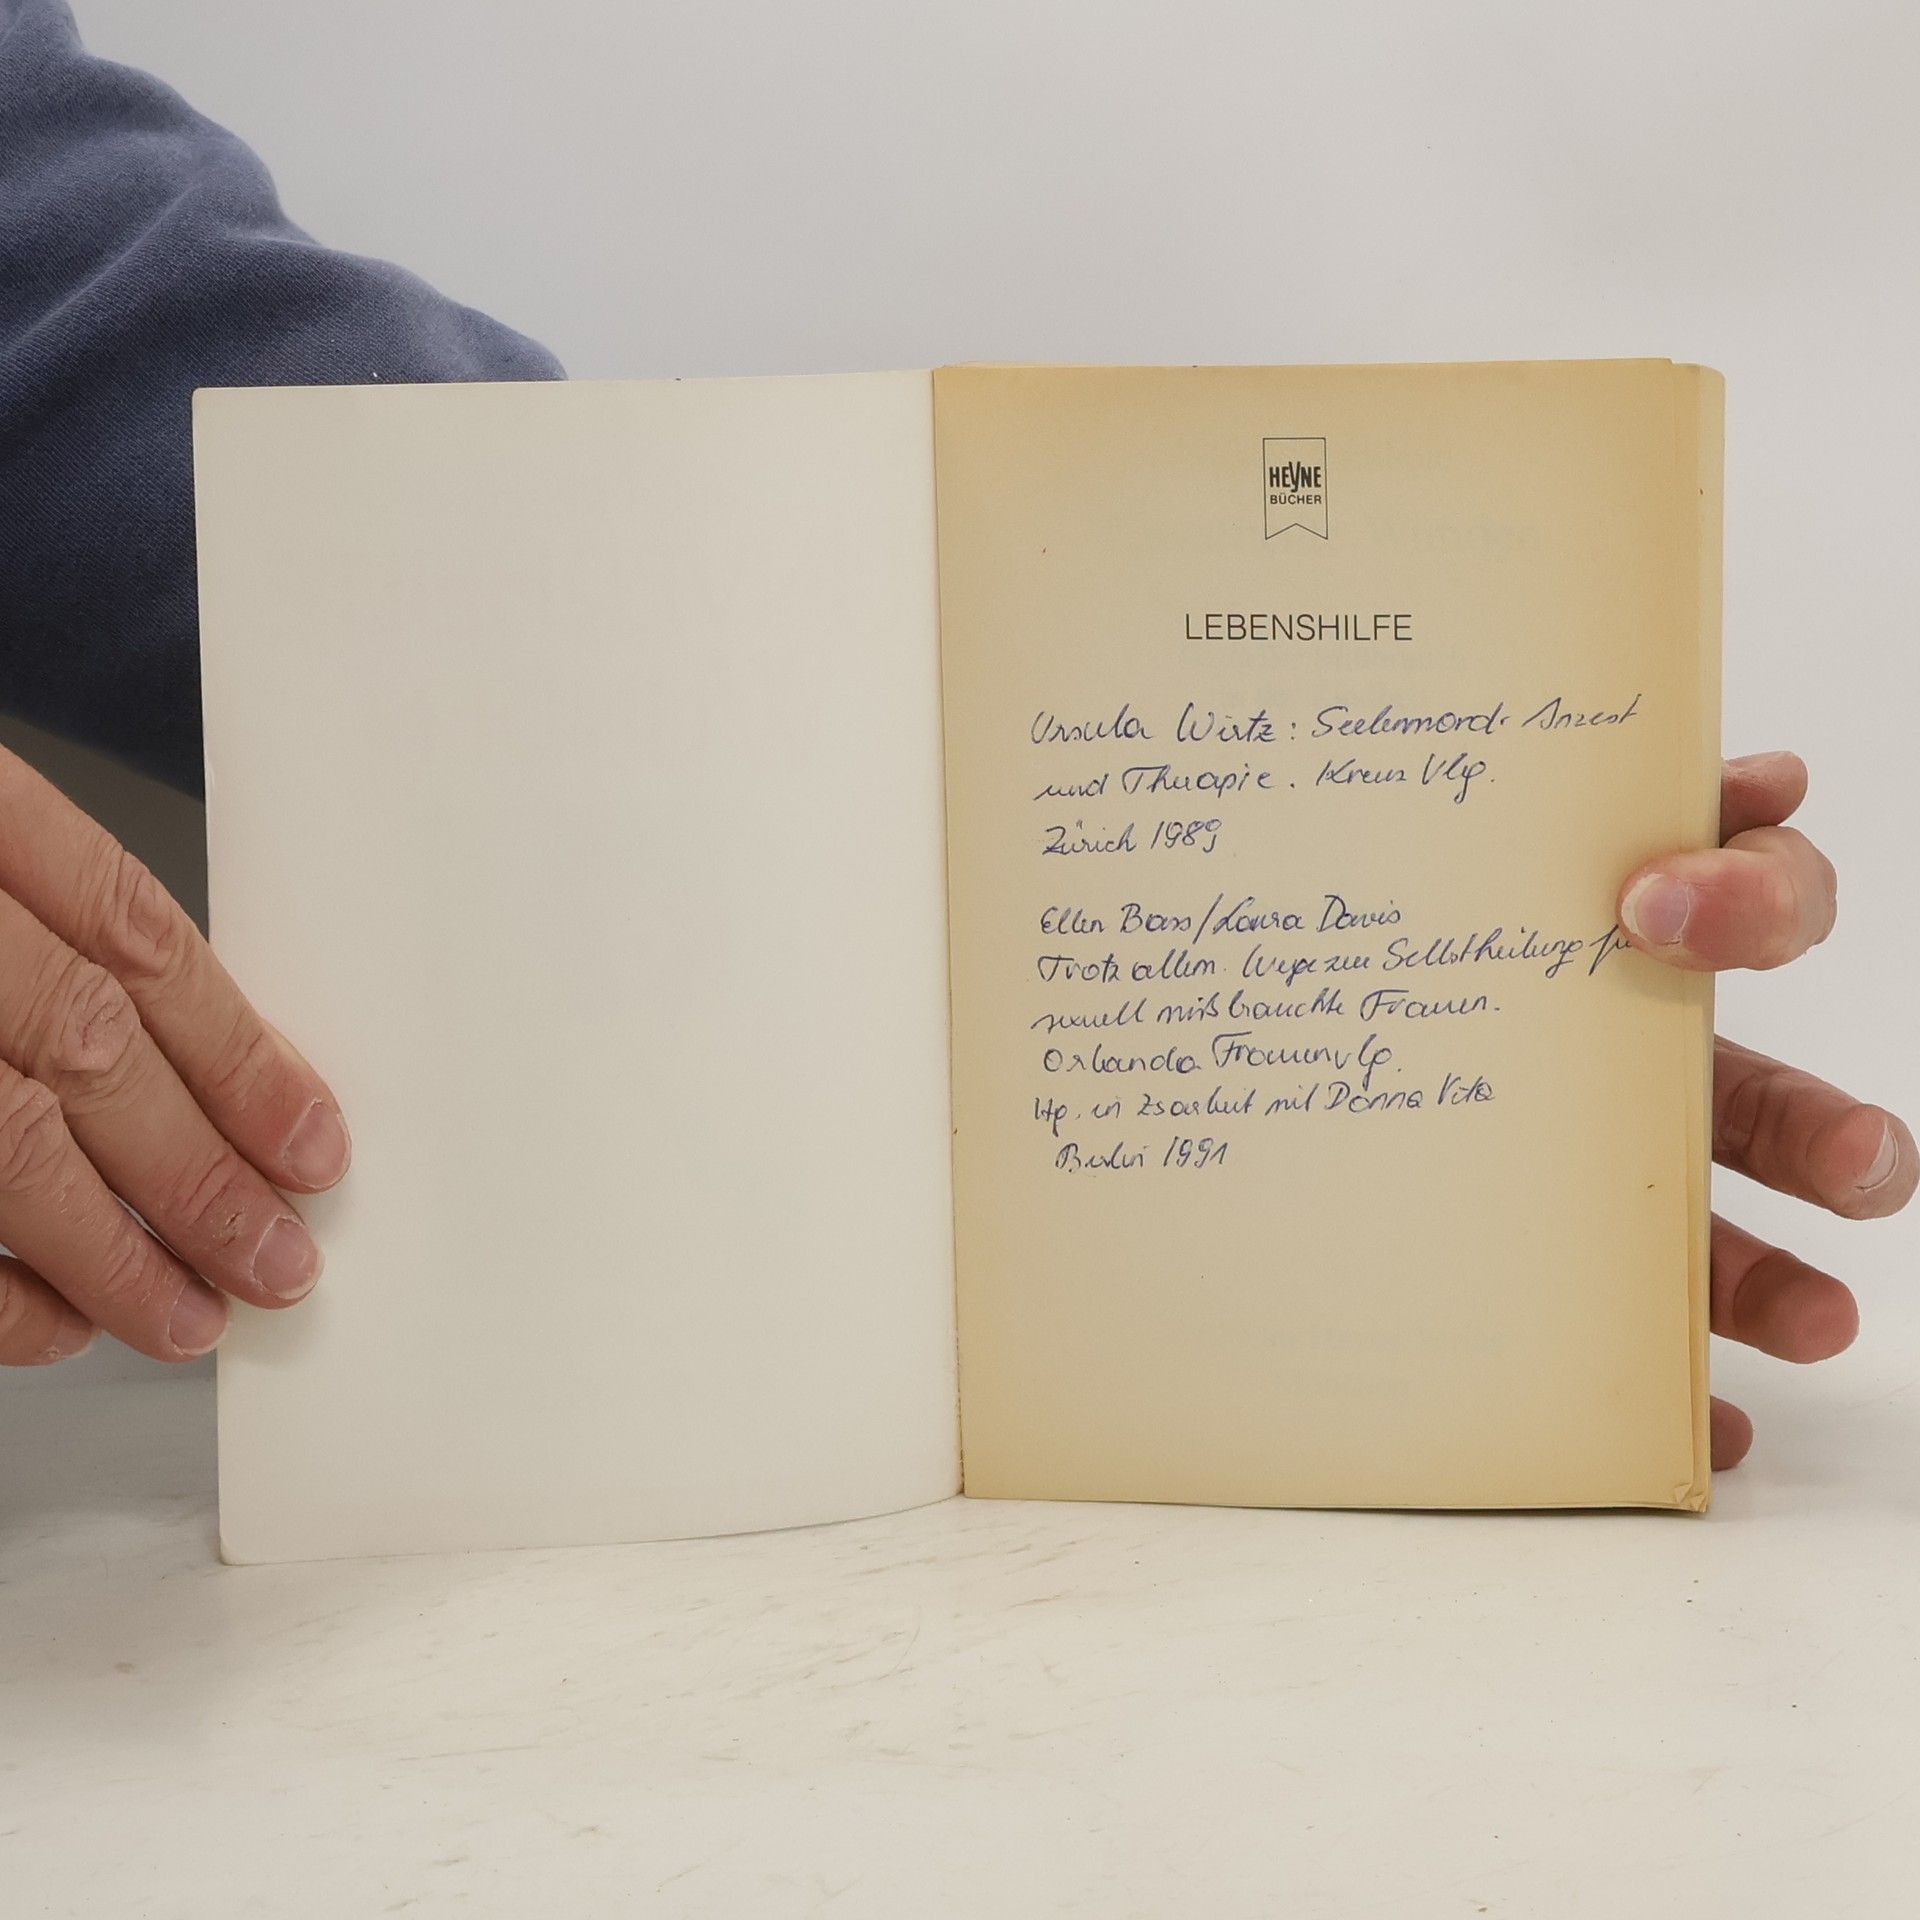 HEYNE
BÜCHER
LEBENSHILFE
Ursula Wirtz: Seelenmord. Inzest
und Therapie. Kreuz Vlg.
Zürich 1989
Ellen Bass/Laura Davis
Trotz allem. Wege zur Selbstheilung
sexuell mißbrauchte Frauen.
Orlanda Frauenvlg.
Hg. in Zsarbeit mit Donna Vita
Berlin 1991